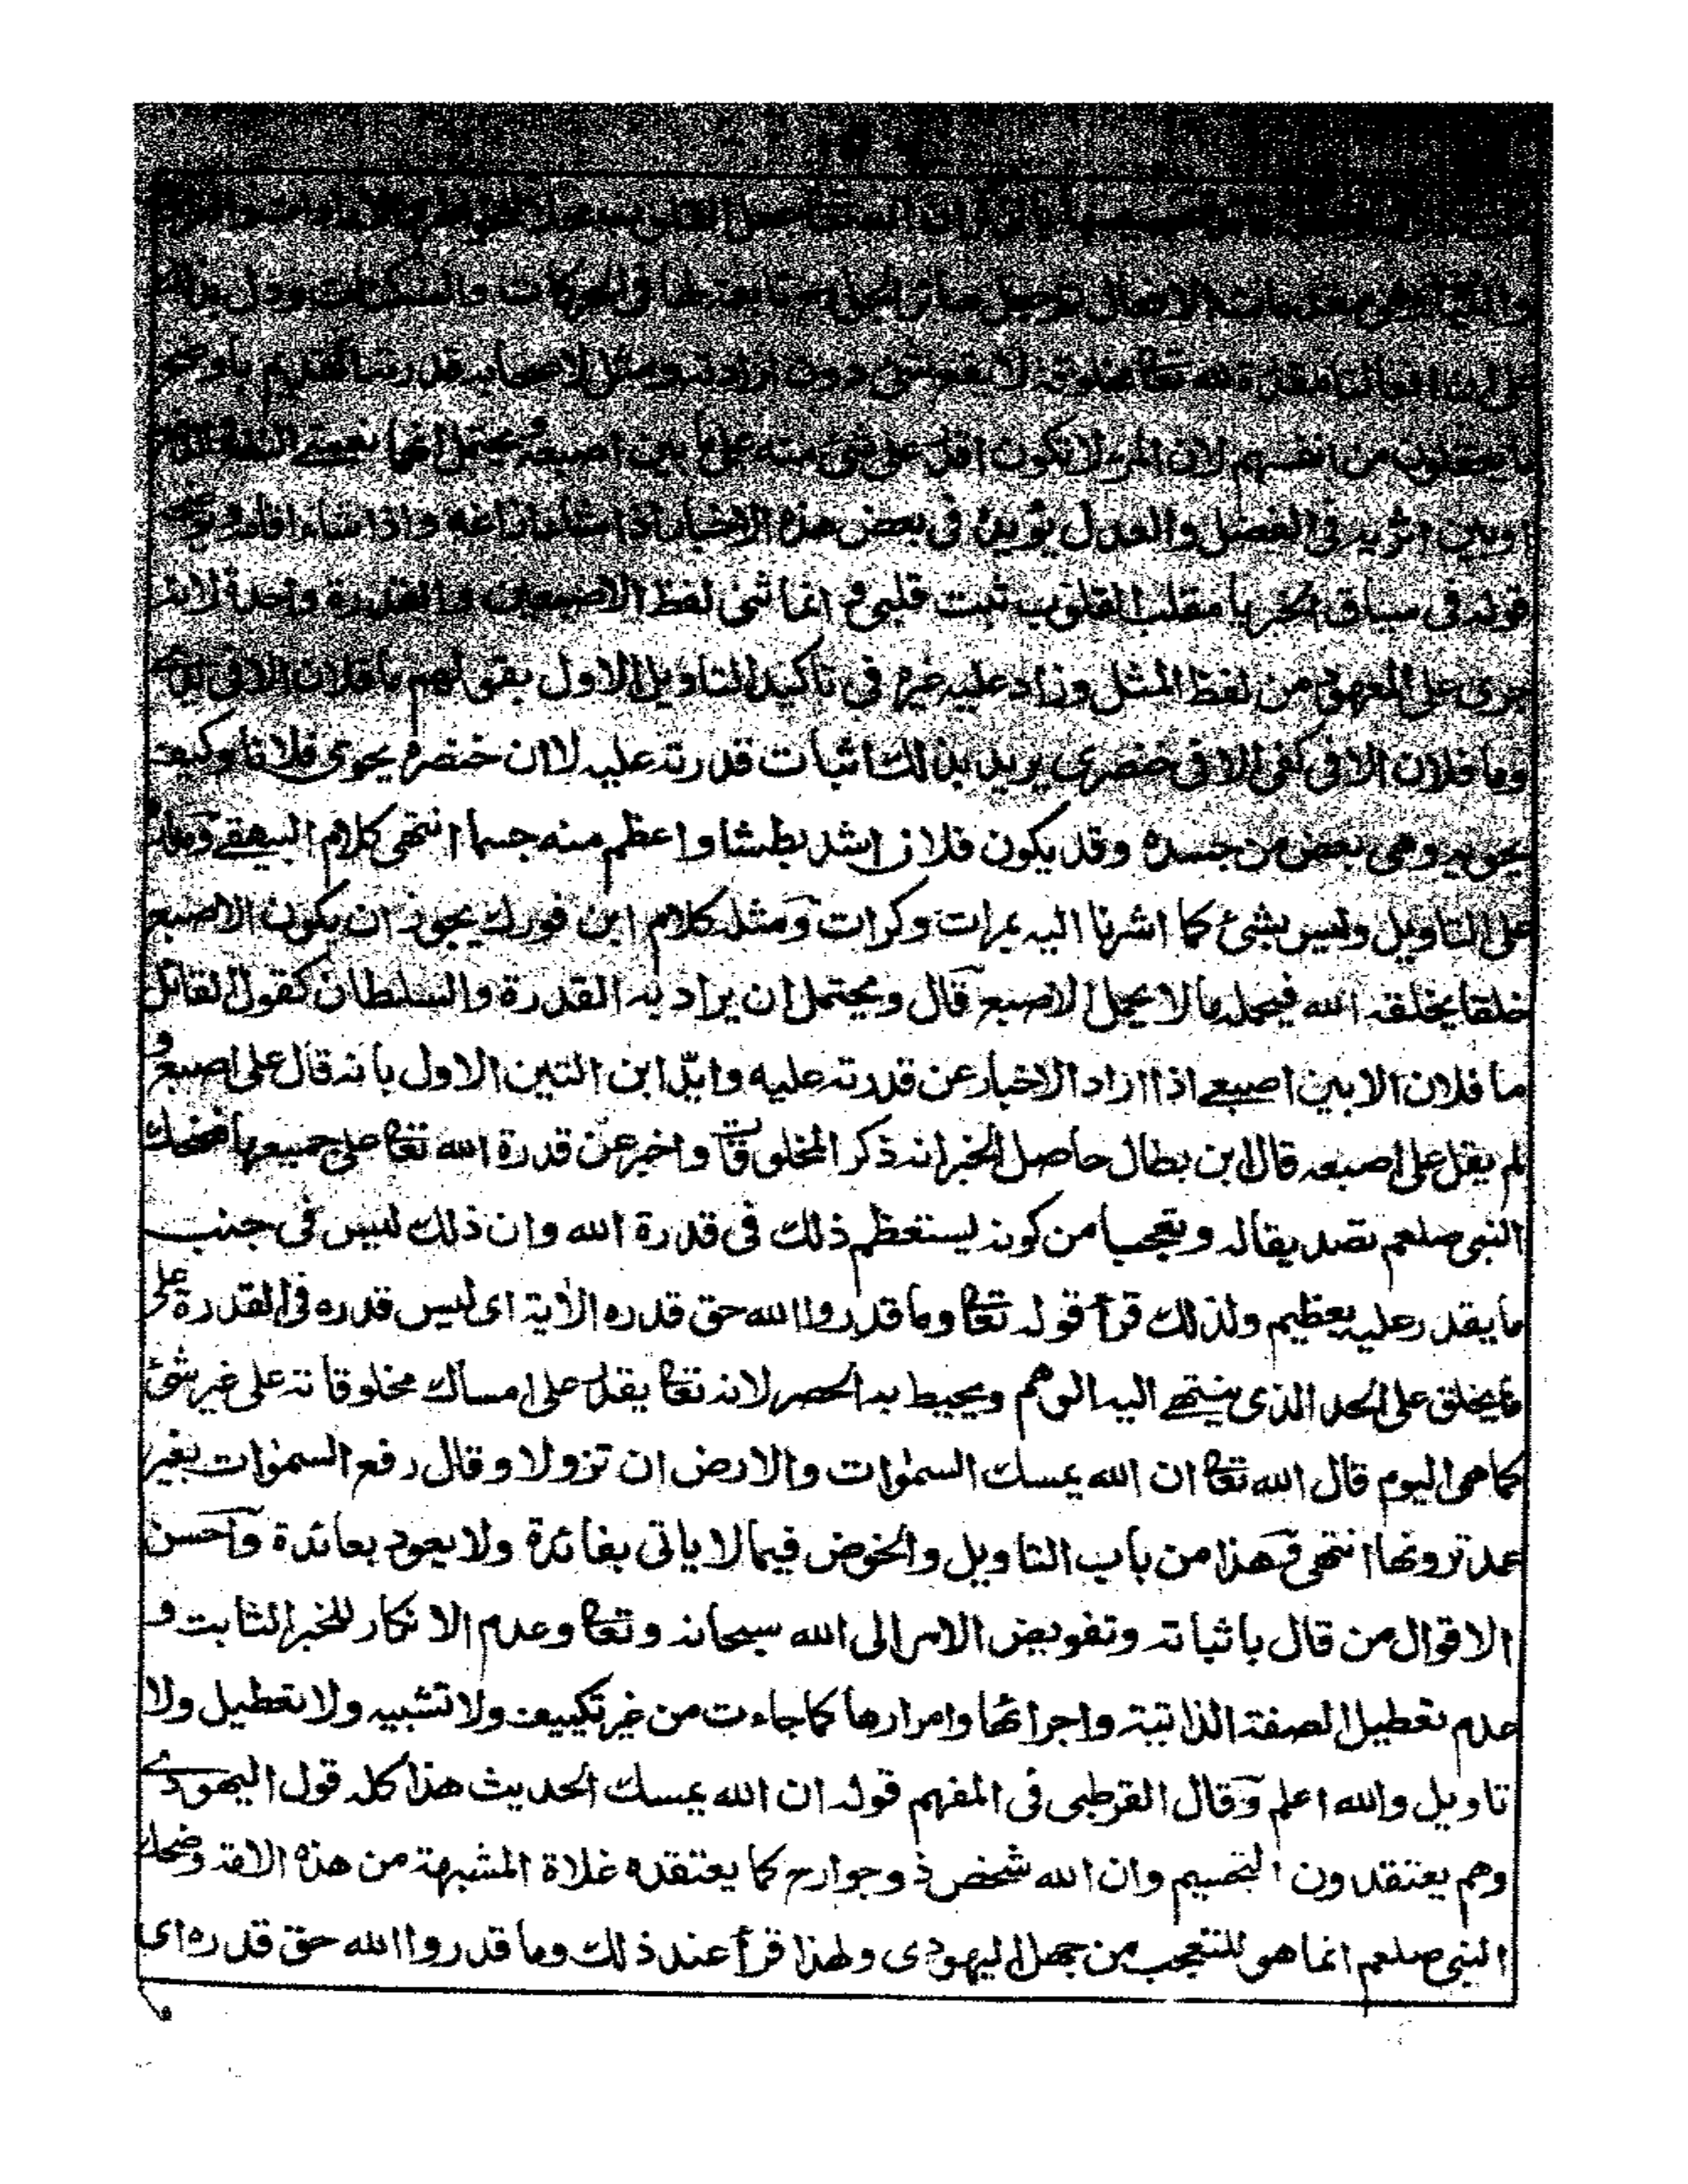 والسكنات ودل بذلك
على ان افعالنا مقدرة لله تعا مخلوقة لا يقع شئ دون ارادته ومثل لاصحابه قدرته القديمة باوضح
ما يعقلون من انفسهم لان المرء لا يكون اقدر على شئ منه على ما بين اصبعيه ويحتمل انها نعمتے
في الفضل والعدل يؤيده في بعض هذه الاخبار اذا شاء ازاغه واذا شاء اقامه ويوضحه
قوله في سياق الخبر يا مقلب القلوب ثبت قلبي وانما ثنى لفظ الاصبعين والقدرة واحدة لانه
جرى على المعهود من لفظ المثل وزاد عليه غيره في تاكيد التاويل الاول بقولهم ما فلان الا في يدے
وما فلان الا في كفي الا في خنصرى يريد بذلك اثبات قدرته عليه لا ان خنصره يحوى فلانا وكيف
يحويه وهى بعض من جسده وقد يكون فلان اشد بطشا واعظم منه جسما انتهى كلام البيهقے
على التاويل وليس بشئ كما اشرنا اليه بمرات وكرات ومثله كلام ابن فورك يجوز ان يكون الاصبع
خلقا يخلقه الله فيحمله ما لا يحمل الاصبع قال ويحتمل ان يراد به القدرة والسلطان كقول القائل
ما فلان الا بين اصبعے اذا اراد الاخبار عن قدرته عليه وايّد ابن التين الاول بانه قال على اصبع و
لم يقل على اصبعه قال ابن بطال حاصل الخبر انه ذكر المخلوقات واخبر عن قدرة الله تعا على جميعها فضحك
النبي صلعم تصديقا له وتعجبا من كونه يستعظم ذلك في قدرة الله وان ذلك ليس في جنب
ما يقدر عليه بعظيم ولذلك قرأ قوله تعا وما قدروا الله حق قدره الاٰية اى ليس قدره في القدرة على
ما يخلق على الحد الذى ينتهے اليه الوهم ويحيط به الحصر لانه تعا يقدر على امساك مخلوقاته على غير شئ
كما هى اليوم قال الله تعا ان الله يمسك السمٰوات والارض ان تزولا وقال رفع السمٰوات بغير
عمد ترونها انتهى وهذا من باب التاويل والخوض فيما لا ياتى بفائدة ولا يعود بعائدة واحسن
الاقوال من قال باثباته وتفويض الامر الى الله سبحانه وتعا وعدم الانكار للخبر الثابت و
عدم تعطيل الصفة الذاتية واجرائها وامرارها كما جاءت من غير تكييف ولا تشبيه ولا تعطيل ولا
تاويل والله اعلم وقال القرطبى في المفهم قوله ان الله يمسك الحديث هذا كله قول اليهودے
وهم يعتقدون التجسيم وان الله شخص ذو جوارح كما يعتقده غلاة المشبهة من هذه الامة وضحك
النبي صلعم انما هو للتعجب من جهل اليهودى ولهذا قرأ عند ذلك وما قدروا الله حق قدره اى